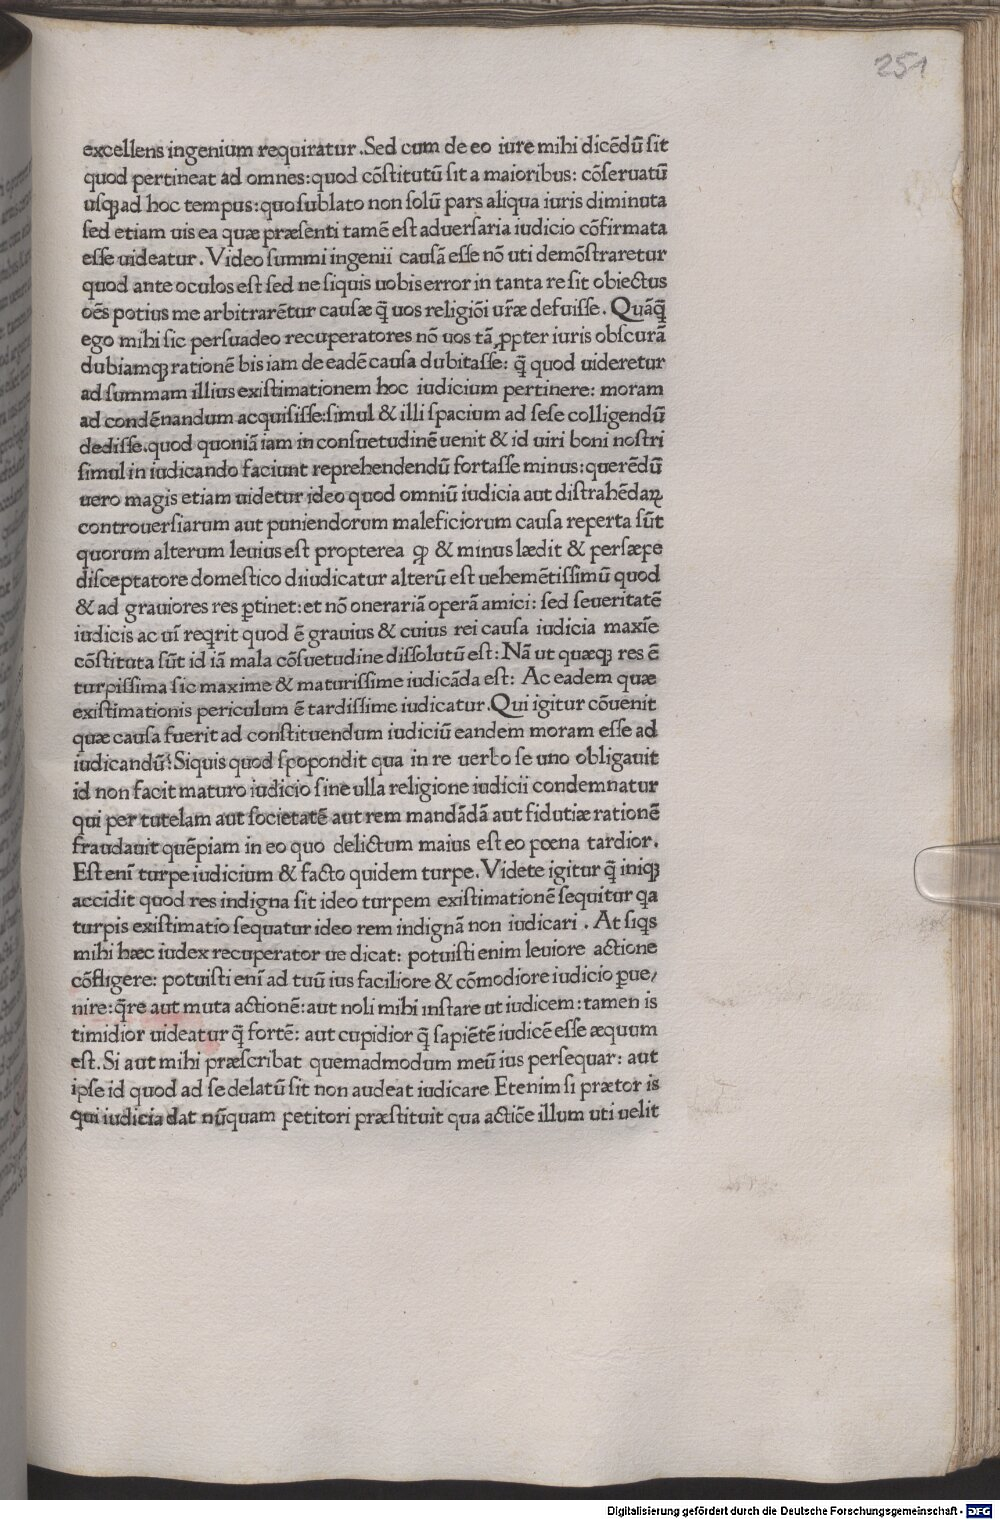 251
excellens ingenium requiratur. Sed cum de eo iure mihi dicēdū sit
quod pertineat ad omnes: quod cōstitutū sit a maioribus: cōseruatū
usqꝫ ad hoc tempus: quo sublato non solū pars aliqua iuris diminuta
sed etiam uis ea quæ præsenti tamē est aduersaria iudicio cōfirmata
esse uideatur. Video summi ingenii causā esse nō uti demōstraretur
quod ante oculos est sed ne siquis uobis error in tanta re sit obiectus
oēs potius me arbitrarētur causæ q̄ uos religiōi ur̄æ defuisse. Quāq̄
ego mihi sic persuadeo recuperatores nō uos tā ꝓpter iuris obscurā
dubiamqꝫ rationē bis iam de eadē causa dubitasse: q̄ quod uideretur
ad summam illius existimationem hoc iudicium pertinere: moram
ad condēnandum acquisisse: simul & illi spacium ad sese colligendū
dedisse. quod quoniā iam in consuetudinē uenit & id uiri boni nostri
simul in iudicando faciunt reprehendendū fortasse minus: querēdū
uero magis etiam uidetur ideo quod omniū iudicia aut distrahēdaꝝ
controuersiarum aut puniendorum maleficiorum causa reperta sūt
quorum alterum leuius est propterea ꝙ & minus lædit & persæpe
disceptatore domestico diiudicatur alterū est uehemētissimū quod
& ad grauiores res ꝑtinet: et nō onerariā operā amici: sed seueritatē
iudicis ac uī reqrit quod ē grauius & cuius rei causa iudicia maxīe
cōstituta sūt id iā mala cōsuetudine dissolutū est: Nā ut quæqꝫ res ē
turpissima sic maxime & maturissime iudicāda est: Ac eadem quæ
existimationis periculum ē tardissime iudicatur. Qui igitur cōuenit
quæ causa fuerit ad constituendum iudiciū eandem moram esse ad
iudicandū? Siquis quod spopondit qua in re uerbo se uno obligauit
id non facit maturo iudicio sine ulla religione iudicii condemnatur
qui per tutelam aut societatē aut rem mandādā aut fidutiæ rationē
fraudauit quēpiam in eo quo delictum maius est eo pœna tardior.
Est enī turpe iudicium & facto quidem turpe. Videte igitur q̄ iniqꝫ
accidit quod res indigna sit ideo turpem existimationē sequitur qa
turpis existimatio sequatur ideo rem indignā non iudicari. At siqs
mihi hæc iudex recuperator ue dicat: potuisti enim leuiore actione
cōfligere: potuisti enī ad tuū ius faciliore & cōmodiore iudicio ꝑue/
nire: q̄re aut muta actionē: aut noli mihi instare ut iudicem: tamen is
timidior uideatur q̄ fortē: aut cupidior q̄ sapiētē iudicē esse æquum
est. Si aut mihi præscribat quemadmodum meū ius persequar: aut
ipse id quod ad se delatū sit non audeat iudicare Etenim si prætor is
qui iudicia dat nūquam petitori præstituit qua actiōe illum uti uelit
Digitalisierung gefördert durch die Deutsche Forschungsgemeinschaft - DFG